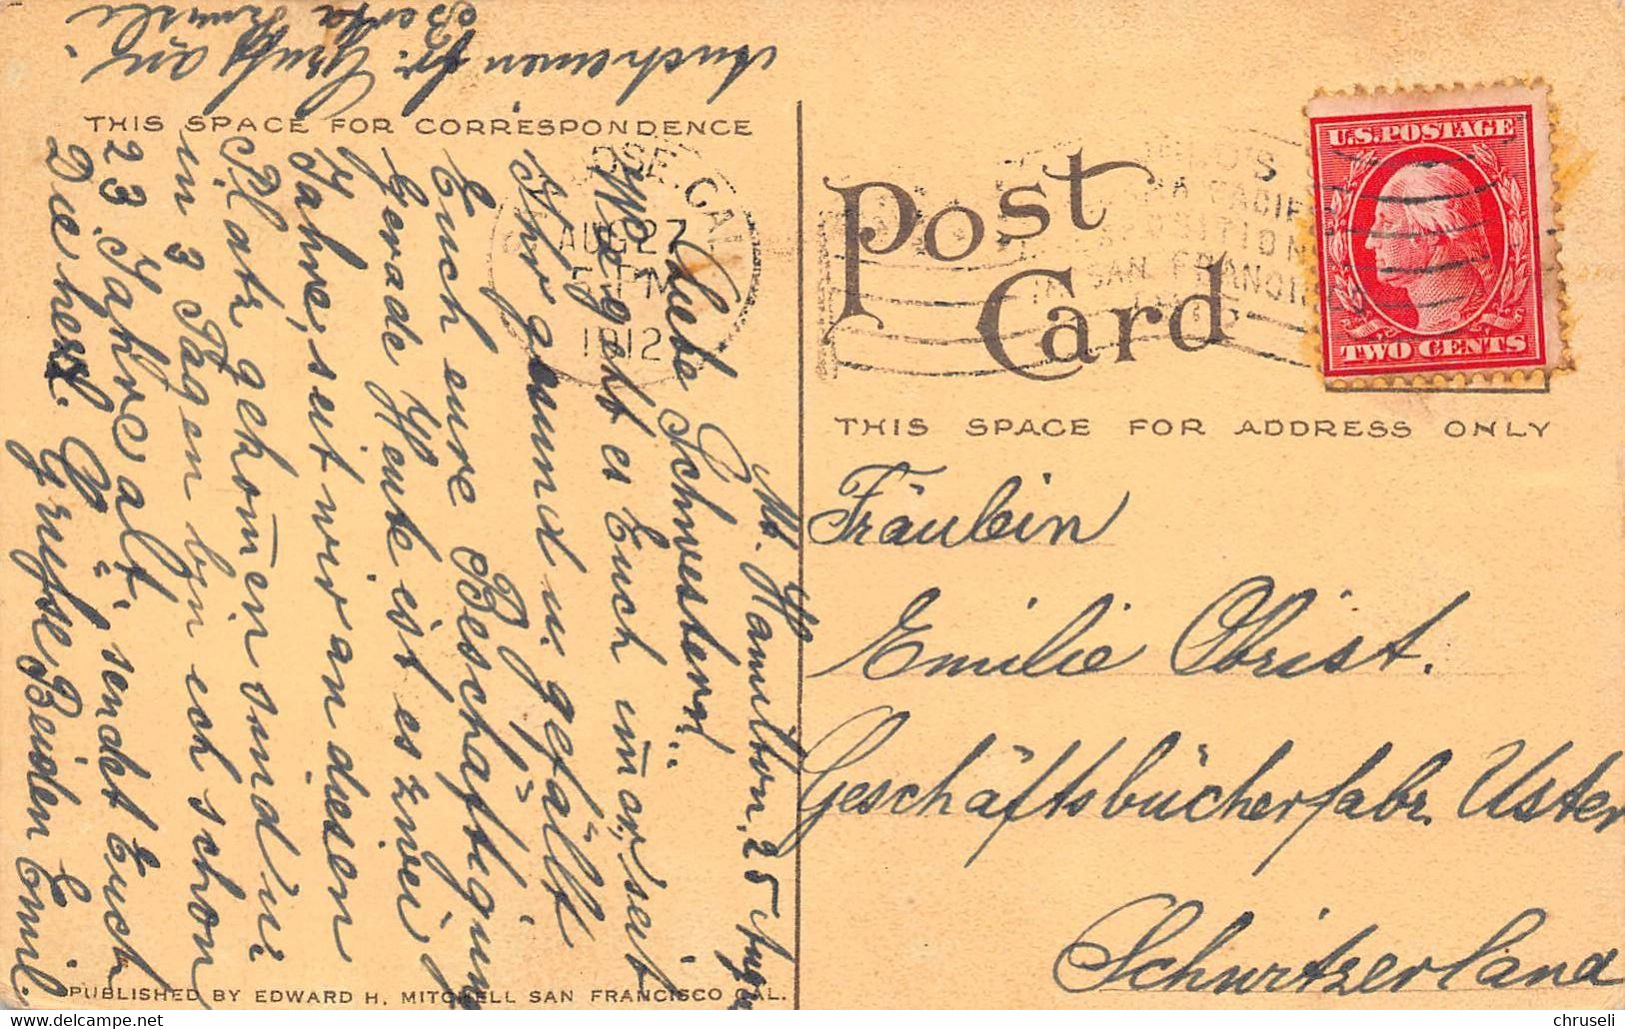 THIS SPACE FOR CORRESPONDENCE
Mt. Hamilton, 25 Aug
Liebe Schwestern.
Wie geht es Euch im̄er, seit
Ihr gesund u. gefällt
Euch eure Beschäftigung
Gerade Heute ist es zwei
Jahre, seit wir an diesen
Platz gekom̄en sind u.
in 3 Tagen bin ich schon
23 Jahre alt, sendet Euch
Die herzl. Grüsse Beiden Emil.
Gruss an
Berta
SAN JOSE, CAL.
AUG 27
5 PM
1912
PACIFIC
EXPOSITION
IN SAN FRANCISCO
U.S. POSTAGE
TWO CENTS
Post
Card
THIS SPACE FOR ADDRESS ONLY
Fräulein
Emilie Obrist.
Geschäftsbücherfabr. Uster
Schwitzerland
PUBLISHED BY EDWARD H. MITCHELL SAN FRANCISCO CAL.
chruseli